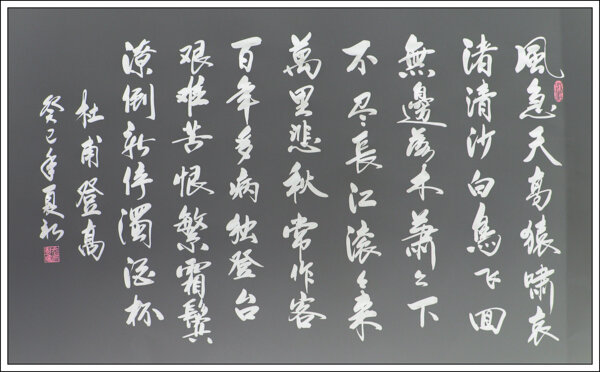 風急天高猿嘯哀
渚清沙白鳥飞回
無邊落木蕭々下
不尽長江滚々来
萬里悲秋常作客
百年多病独登台
艰难苦恨繁霜鬓
潦倒新停濁酒杯
杜甫登高
癸巳年夏